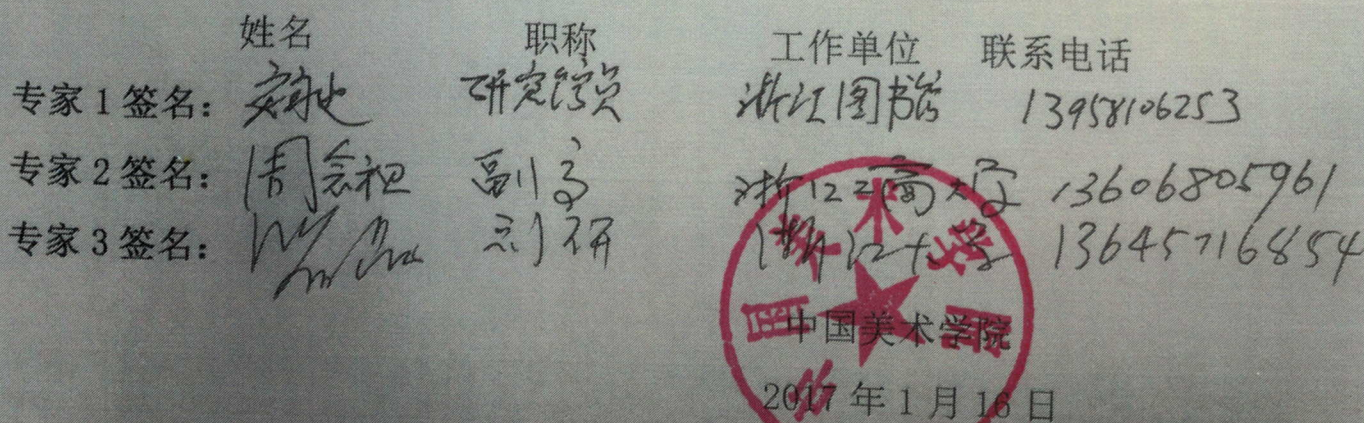 姓名 职称 工作单位 联系电话
专家1签名： 研究馆员 浙江图书馆 13958106253
专家2签名：周念祖 副高 浙江工商大学 13606805961
专家3签名： 副研 浙江大学 13645716854
中国美术学院
中国美术学院
2017年1月16日